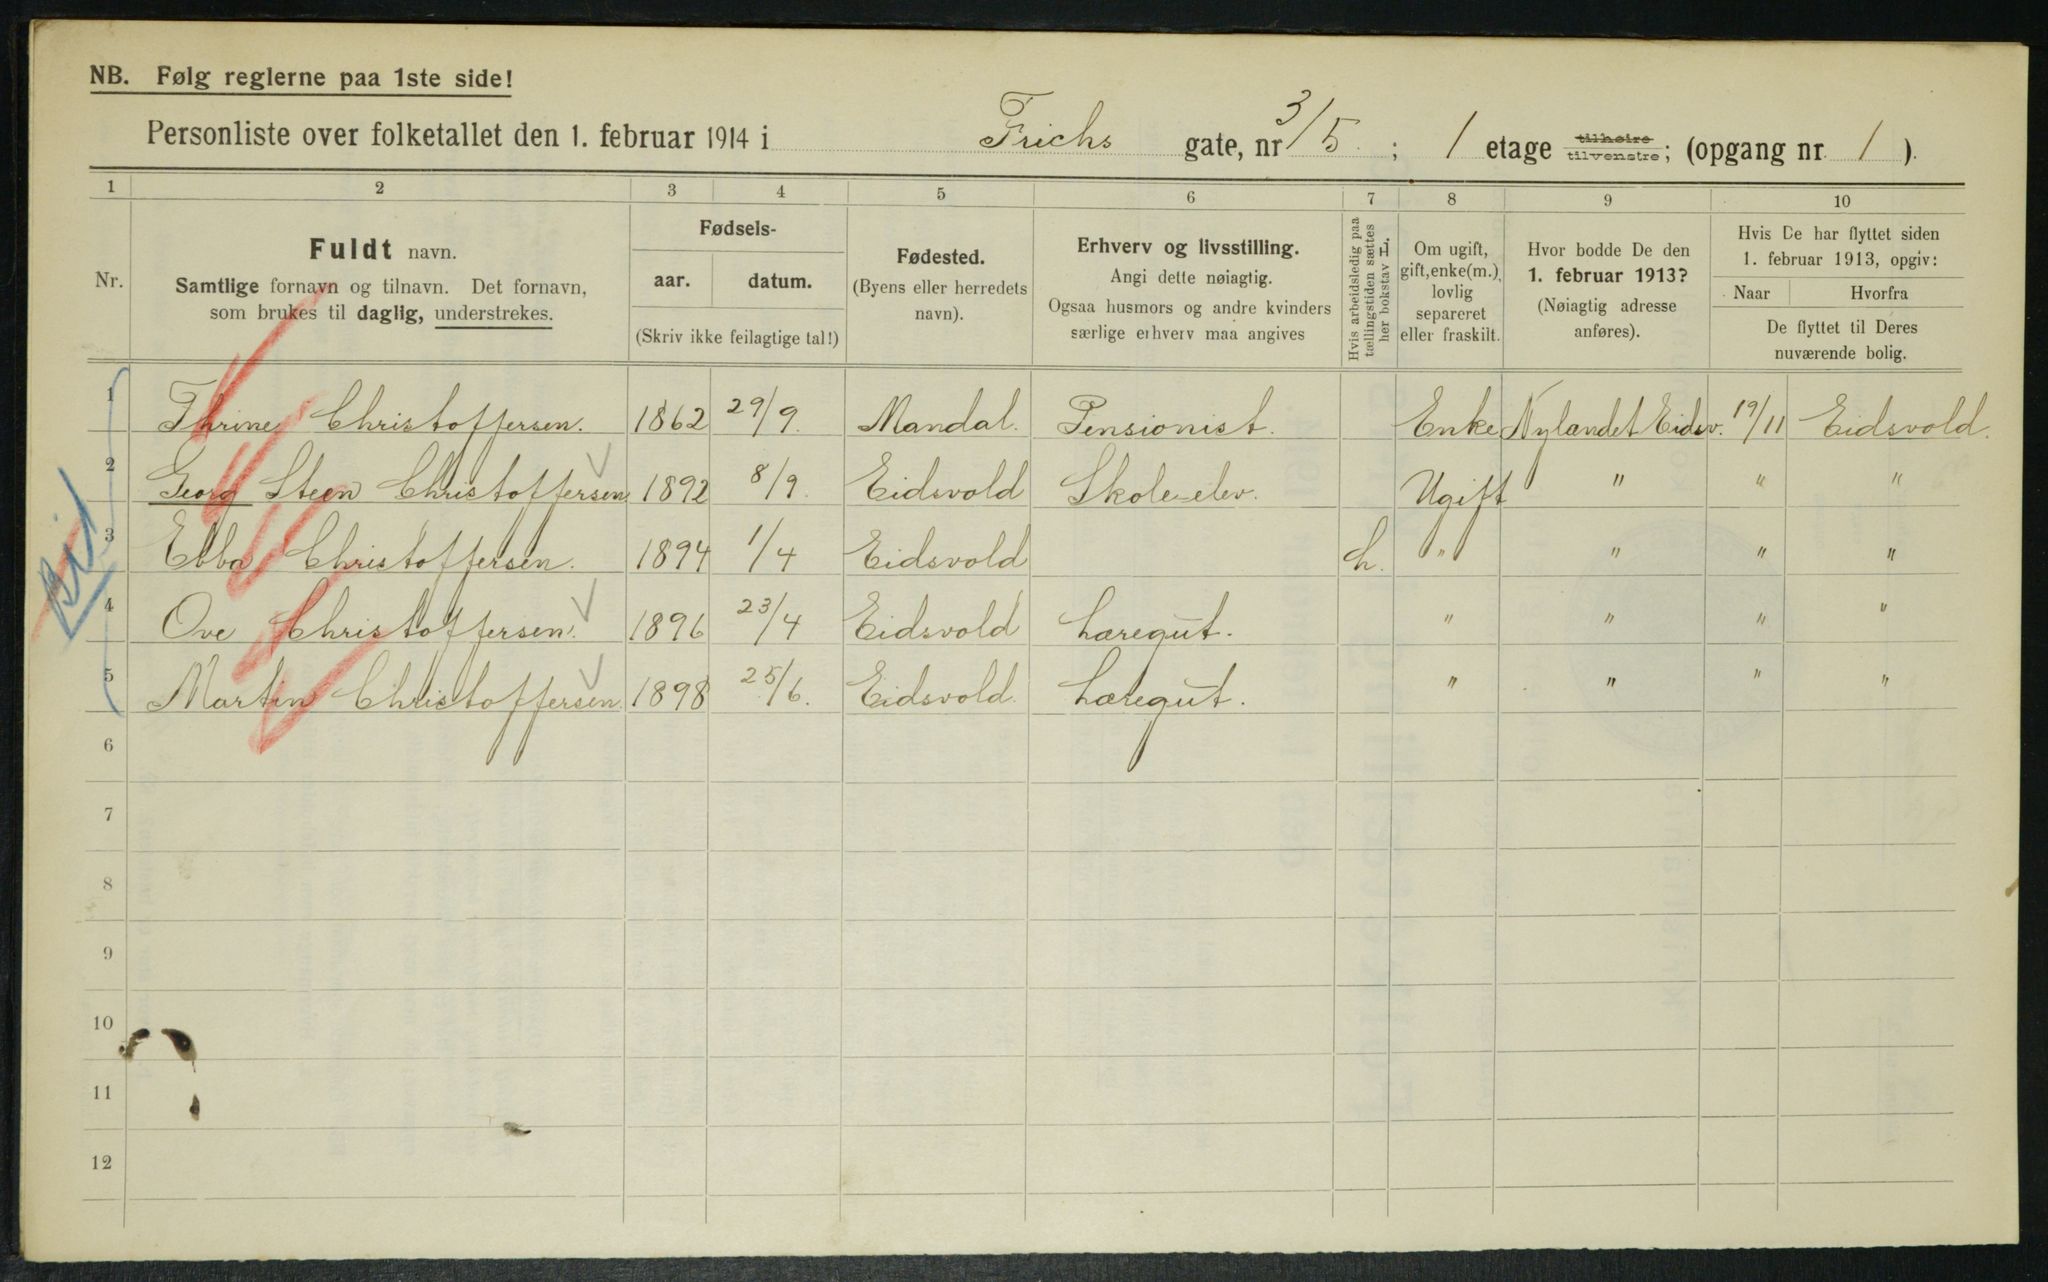 NB. Følg reglerne paa 1ste side!
Personliste over folketallet den 1. februar 1914 i Frichs gate, nr 3/5 ; 1 etage tilhøire tilvenstre; (opgang nr. 1 ).
1 2 3 4 5 6 7 8 9 10
Nr.
Fuldt navn.
Samtlige fornavn og tilnavn. Det fornavn,
som brukes til daglig, understrekes.
Fødsels-
aar. datum.
(Skriv ikke feilagtige tal!)
Fødested.
(Byens eller herredets
navn).
Erhverv og livsstilling.
Angi dette nøiagtig.
Ogsaa husmors og andre kvinders
særlige erhverv maa angives
Hvis arbeidsledig paa
tællingstiden sættes
her bokstav L.
Om ugift,
gift, enke(m.),
lovlig
separeret
eller fraskilt.
Hvor bodde De den
1. februar 1913?
(Nøiagtig adresse
anføres).
Hvis De har flyttet siden
1. februar 1913, opgiv:
Naar Hvorfra
De flyttet til Deres
nuværende bolig.
1 Thrine Christoffersen. 1862 29/9. Mandal. Pensionist. Enke Nylandet Eidsv. 19/11 Eidsvold.
2 Georg Steen Christoffersen 1892 8/9. Eidsvold Skole-elev. Ugift " " "
3 Ebba Christoffersen. 1894 1/4 Eidsvold L. " " " "
4 Ove Christoffersen. 1896 23/4 Eidsvold Læregut. " " " "
5 Martin Christoffersen 1898 25/6. Eidsvold. Læregut. " " " "
6
7
8
9
10
11
12